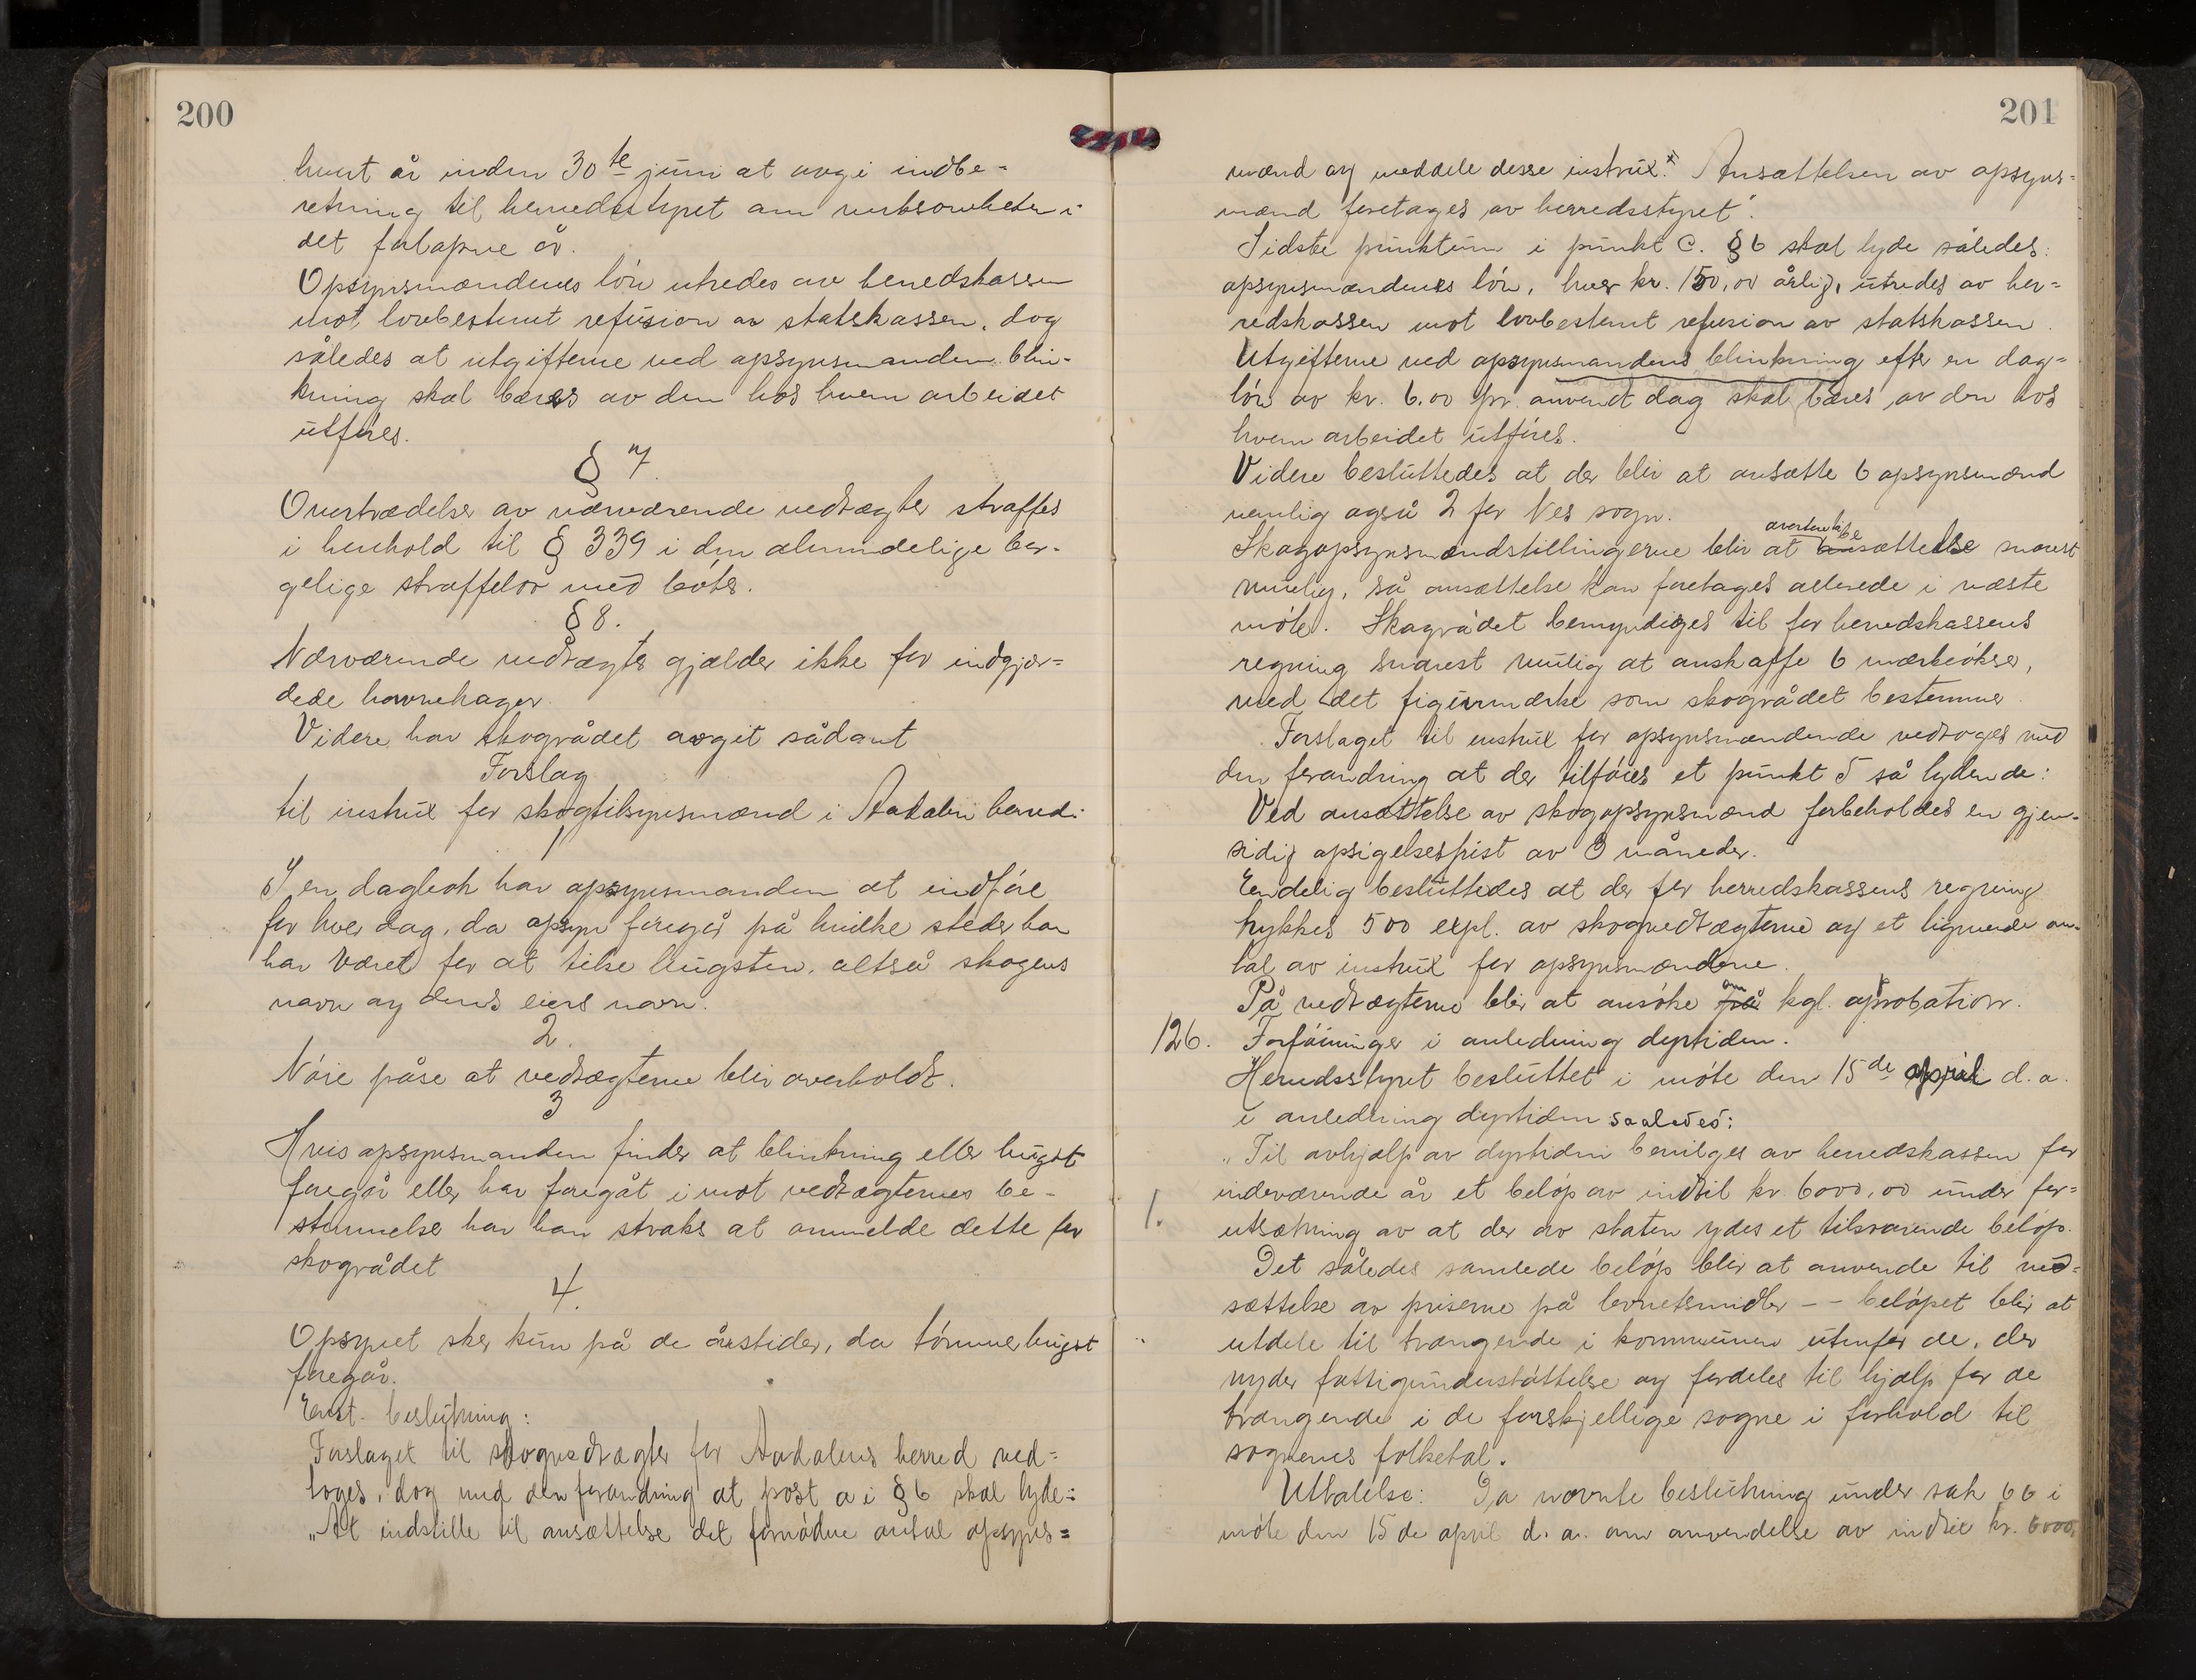 200
hvert år inden 30te juni at avgi indbe-
retning til herredsstyret om virksomheten i
det forløpne år.
Opsynsmændenes lön utredes av herredskassen
mot lovbestemt refusion av statskassen, dog
således at utgifterne ved opsynsmanden blin-
kning skal bæres av den hos hvem arbeidet
utföres.
§ 7
Overtrædelser av nærværende vedtægter straffes
i henhold til § 339 i den almindelige bor-
gelige straffelov med böter.
§ 8.
Nærværende vedtægter gjælder ikke for indgjær-
dede havnehager.
Videre har skogrådet avgit sådant
Forslag
til instrux for skogtilsynsmænd i Aadalen herred:
1
I en dagbok har opsynsmanden at indföre
for hver dag, da opsyn foregår på hvilke steder han
har været for at tilse hugsten, altså skogens
navn og dens eiers navn.
2.
Nöie påse at vedtægterne blir overholdt.
3
Hvis opsynsmanden finder at blinkning eller hugst
foregår eller har foregåt imot vedtægternes be-
stemmelser har han straks at anmelde dette for
skogrådet
4.
Opsynet sker kun på de årstider, da tömmerhugst
foregår.
Enst. beslutning:
Forslaget til skogvedtægter for Aadalens herred ved-
toges, dog med den forandring at post a i § 6 skal lyde:
„At indstille til ansættelse det fornödne antal opsyns=
201
mænd og meddele desse instrux. Ansættelsen av opsyns=
mænd foretages av herredsstyret".
Sidste punktum i punkt C. § 6 skal lyde således:
opsynsmændenes lön, hver kr. 150,00 årlig, utredes av her=
redskassen mot lovbestemt refusion av statskassen.
Utgifterne ved opsynsmandens blinkning efter en dag=
lön av kr. 6.00 pr. anvendt dag skal bæres av den hos
hvem arbeidet utföres.
Videre besluttedes at der blir at ansætte 6 opsynsmænd
nemlig også 2 for Nes sogn.
Skogopsynsmændstillingerne blir at besættelse snarest
mulig, så ansættelse kan foretages allerede i næste
möte. Skogrådet bemyndiges til for herredskassens
regning snarest mulig at anskaffe 6 merkeökser,
med det figurmærke som skogrådet bestemmer.
Forslaget til instrux for opsynsmændende vedtoges med
den forandring at der tilföies et punkt 5 så lydende:
Ved ansættelse av skogopsynsmænd forbeholdes en gjen-
sidig opsigelsesfrist av 3 måneder.
Endelig besluttedes at der for herredskassens regning
trykkes 500 expl. av skogvedtægterne og et lignende an-
tal av instrux for opsynsmændene.
På vedtægterne blir at ansöke om kgl. aprobation.
126. Forföininger i anledning dyrtiden.
Herredsstyret besluttet i möte den 15de april d.a.
i anledning dyrtiden saaledes:
„Til avhjælp av dyrtiden bevilges av herredskassen for
indeværende år et belöp av indtil kr. 6000,00 under for=
1. utsætning av at der av staten ydes et tilsvarende belöp.
Det således samlede belöp blir at anvende til ned=
sættelse av priserne på levnetsmidler – – belöpet blir at
utdele til trængende i kommunen utenfor de, der
nyder fattigunderstöttelse og fordeles til hjælp for de
trængende i de forskjellige sogne i forhold til
sognenes folketal.
Uttalelse: Da nævnte beslutning under sak 66 i
möte den 15de april d. a. om anvendelse av indtil kr. 6000,